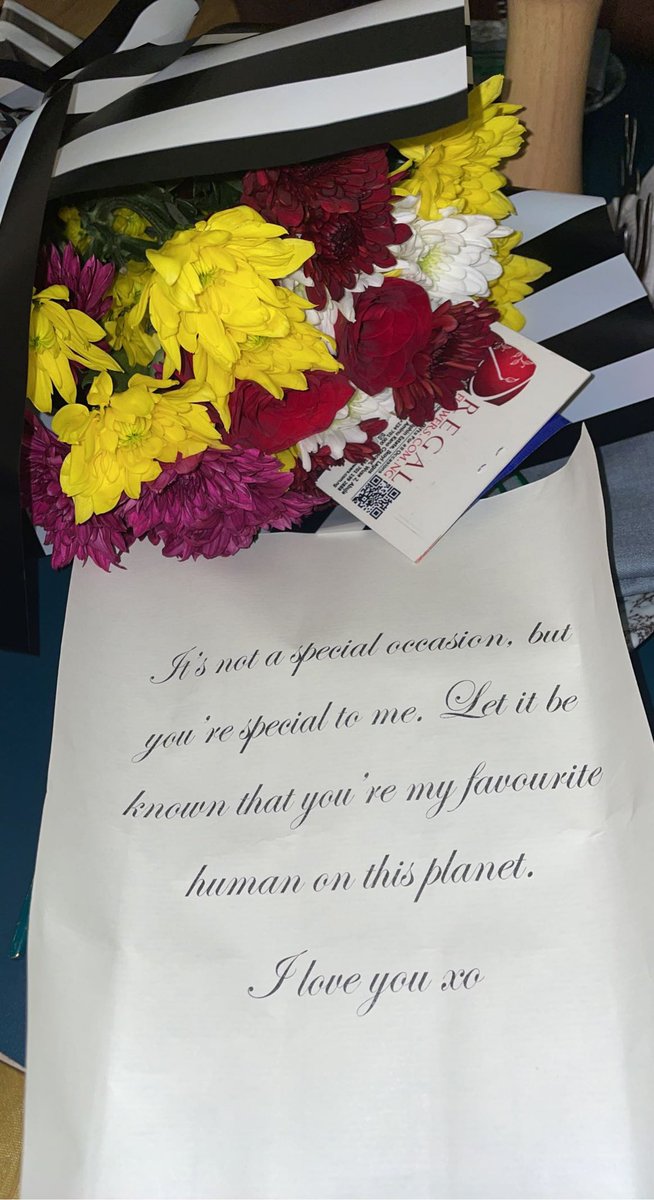 REGAL
FLOWERS.COM.NG
It's not a special occasion, but
you're special to me. Let it be
known that you're my favourite
human on this planet.
I love you xo